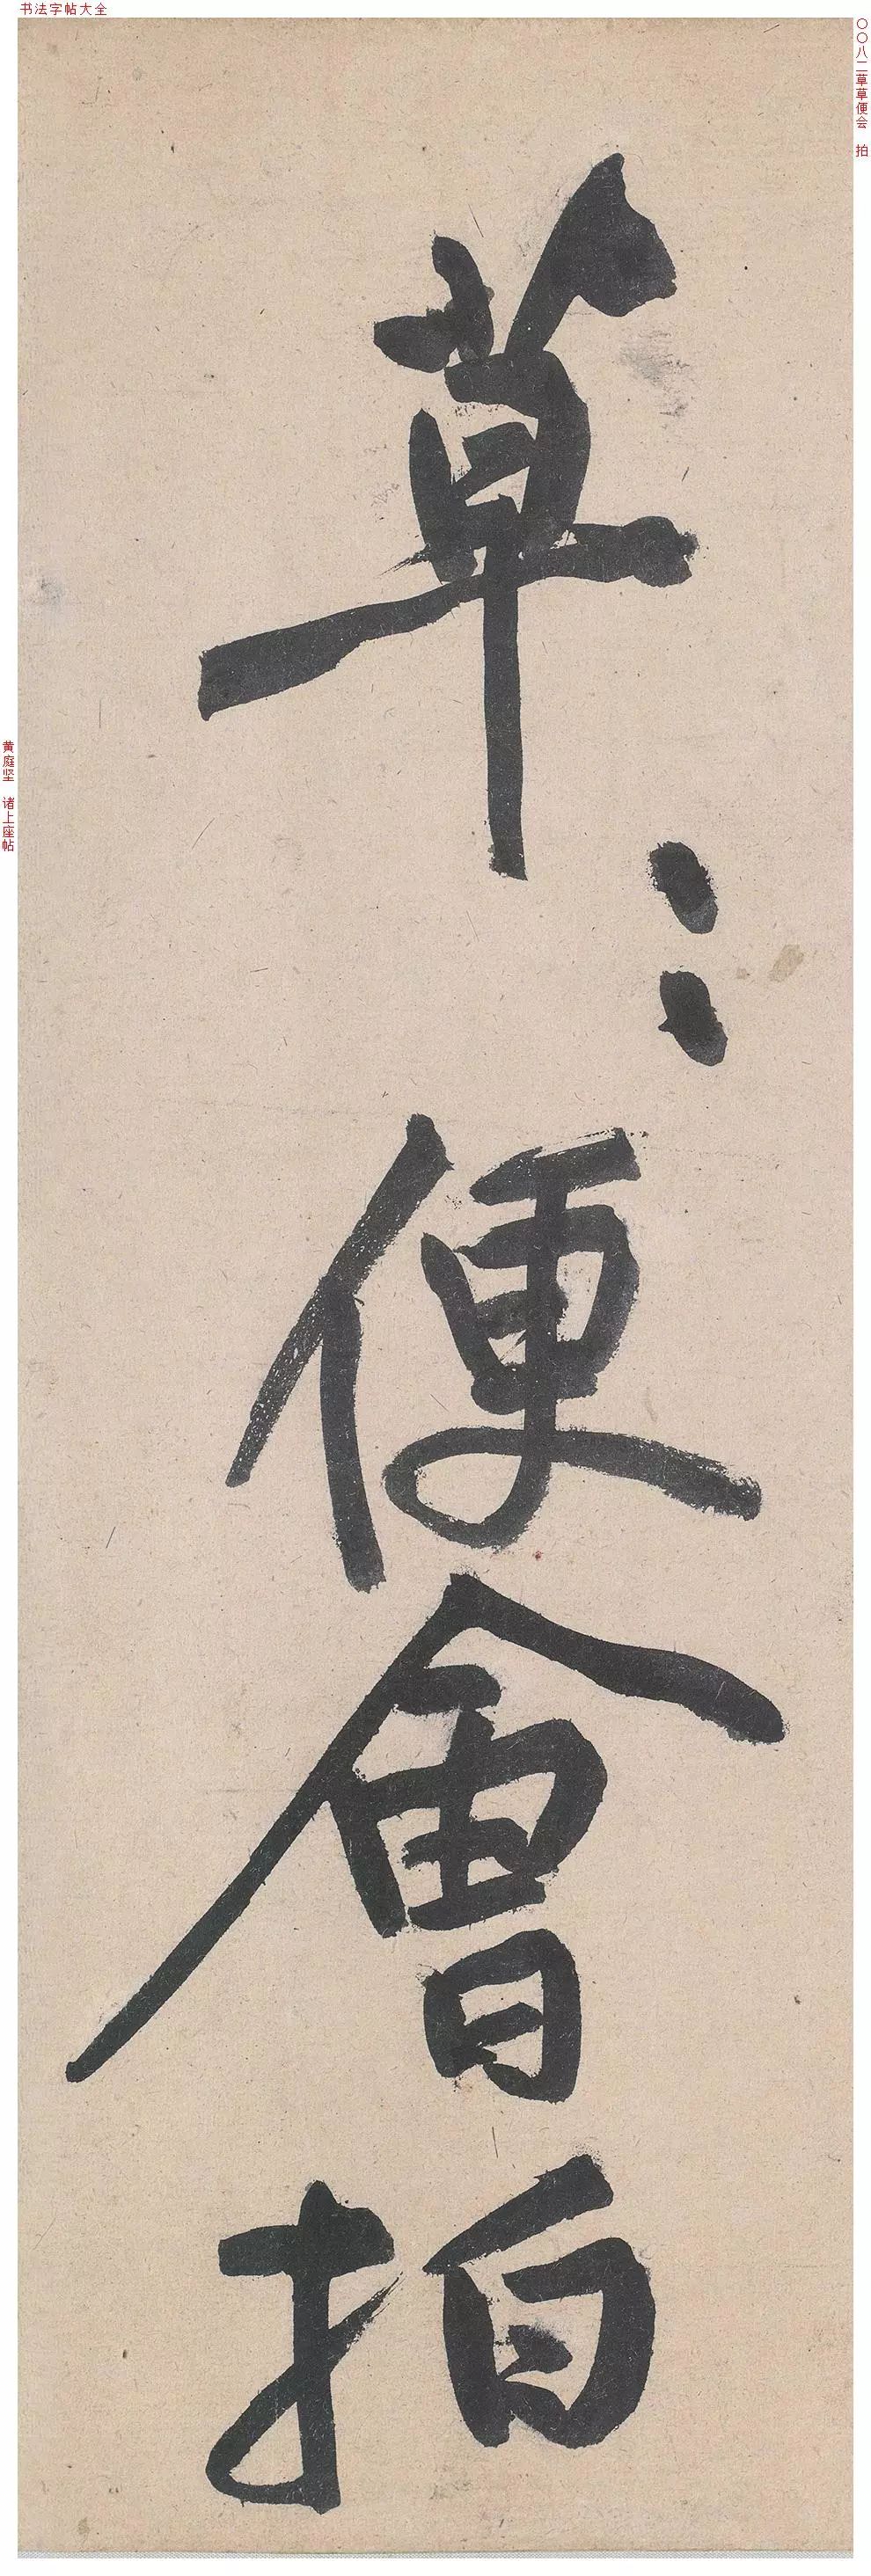 书法字帖大全
〇〇八二草草便会 拍
草〻便會拍
黄庭坚 诸上座帖